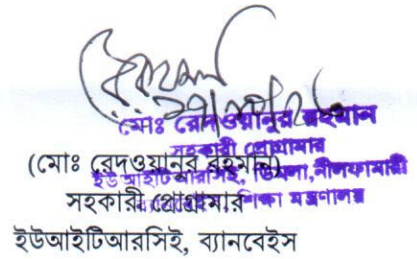 মোঃ রেদওয়ানুর রহমান
সহকারী প্রোগ্রামার
ইউআইটিআরসিই, ডিমলা, নীলফামারী
শিক্ষা মন্ত্রণালয়
(মোঃ রেদওয়ানুর রহমান)
সহকারী প্রোগ্রামার
ইউআইটিআরসিই, ব্যানবেইস